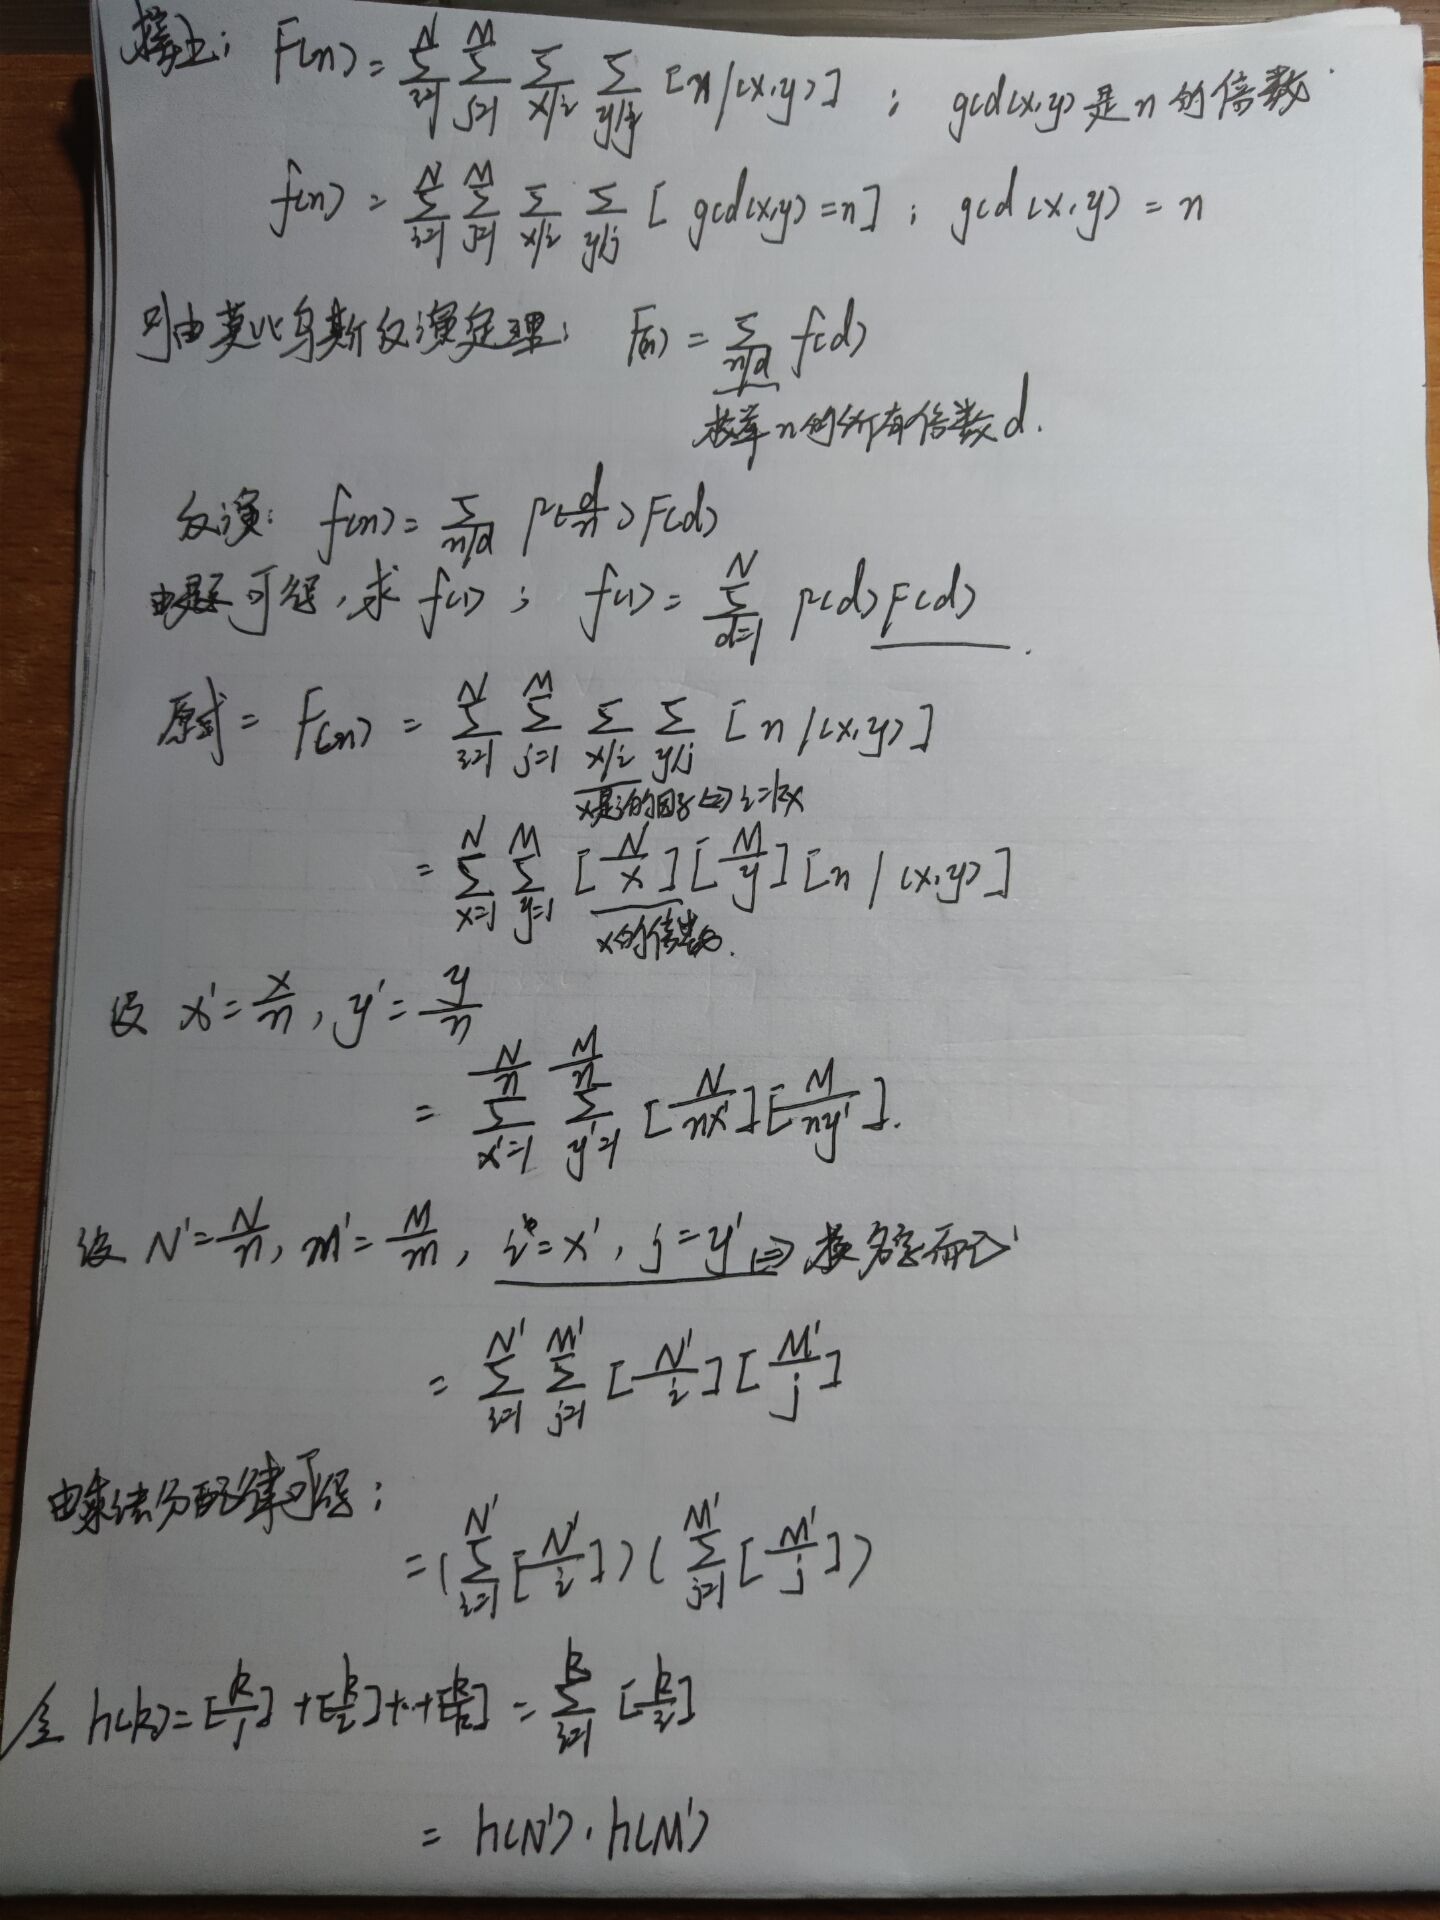 接上: F(n) = \sum_{i=1}^{N} \sum_{j=1}^{M} \sum_{x|i} \sum_{y|j} [n|(x,y)] ; gcd(x,y)是n的倍数.
f(n) = \sum_{i=1}^{N} \sum_{j=1}^{M} \sum_{x|i} \sum_{y|j} [gcd(x,y)=n] ; gcd(x,y) = n
则由莫比乌斯反演定理: F(n) = \sum_{n|d} f(d)
枚举n的所有倍数d.
反演: f(n) = \sum_{n|d} μ(\frac{d}{n}) F(d)
由题可得, 求f(1) ; f(1) = \sum_{d=1}^{N} μ(d) F(d) .
原式 = F(n) = \sum_{i=1}^{N} \sum_{j=1}^{M} \sum_{x|i} \sum_{y|j} [n|(x,y)]
x是i的因子 <=> i=kx
= \sum_{x=1}^{N} \sum_{y=1}^{M} [\frac{N}{x}] [\frac{M}{y}] [n|(x,y)]
x的倍数.
设 x' = \frac{x}{n}, y' = \frac{y}{n}
= \sum_{x'=1}^{\frac{N}{n}} \sum_{y'=1}^{\frac{M}{n}} [\frac{N}{nx'}] [\frac{M}{ny'}].
设 N' = \frac{N}{n}, m' = \frac{M}{m}, i = x', j = y' => 换名字而已
= \sum_{i=1}^{N'} \sum_{j=1}^{M'} [\frac{N'}{i}] [\frac{M'}{j}]
由乘法分配律可得:
= (\sum_{i=1}^{N'} [\frac{N'}{i}]) (\sum_{j=1}^{M'} [\frac{M'}{j}])
令 h(k) = [\frac{k}{1}] + [\frac{k}{2}] + .. + [\frac{k}{k}] = \sum_{i=1}^{k} [\frac{k}{i}]
= h(N') · h(M')